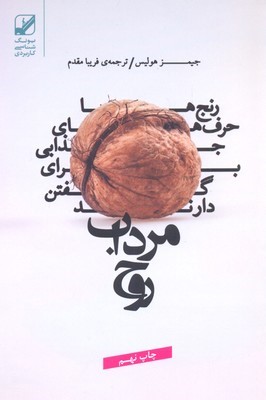 یونگ
شناسی
کاربردی
جیمز هولیس/ ترجمه‌ی فریبا مقدم
رنج‌ها
حرف‌های
جذابی
برای
گفتن
دارند
مرداب
روح
چاپ نهم